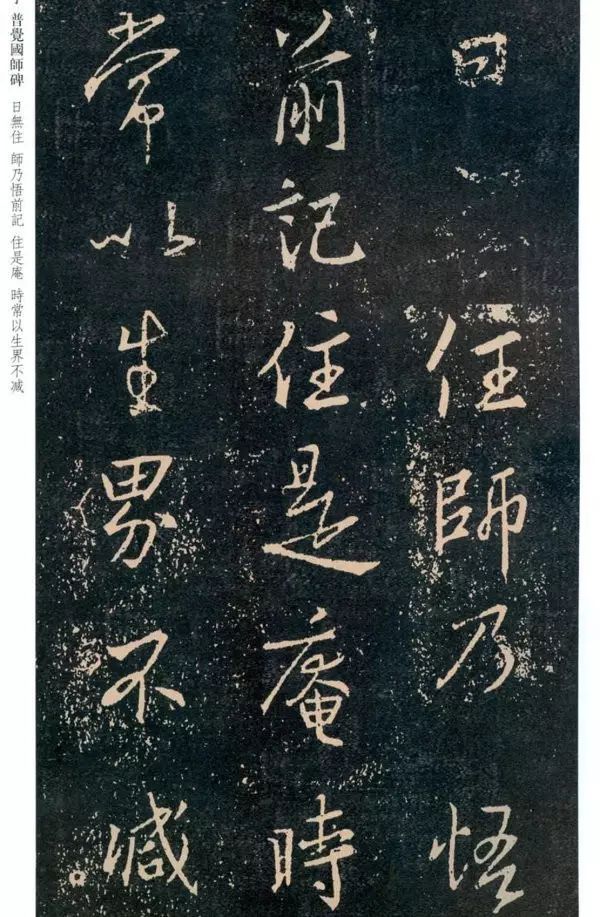 曰住師乃悟
前記住是庵時
常以生界不减
普覺國師碑 日無住 師乃悟前記 住是庵 時常以生界不减